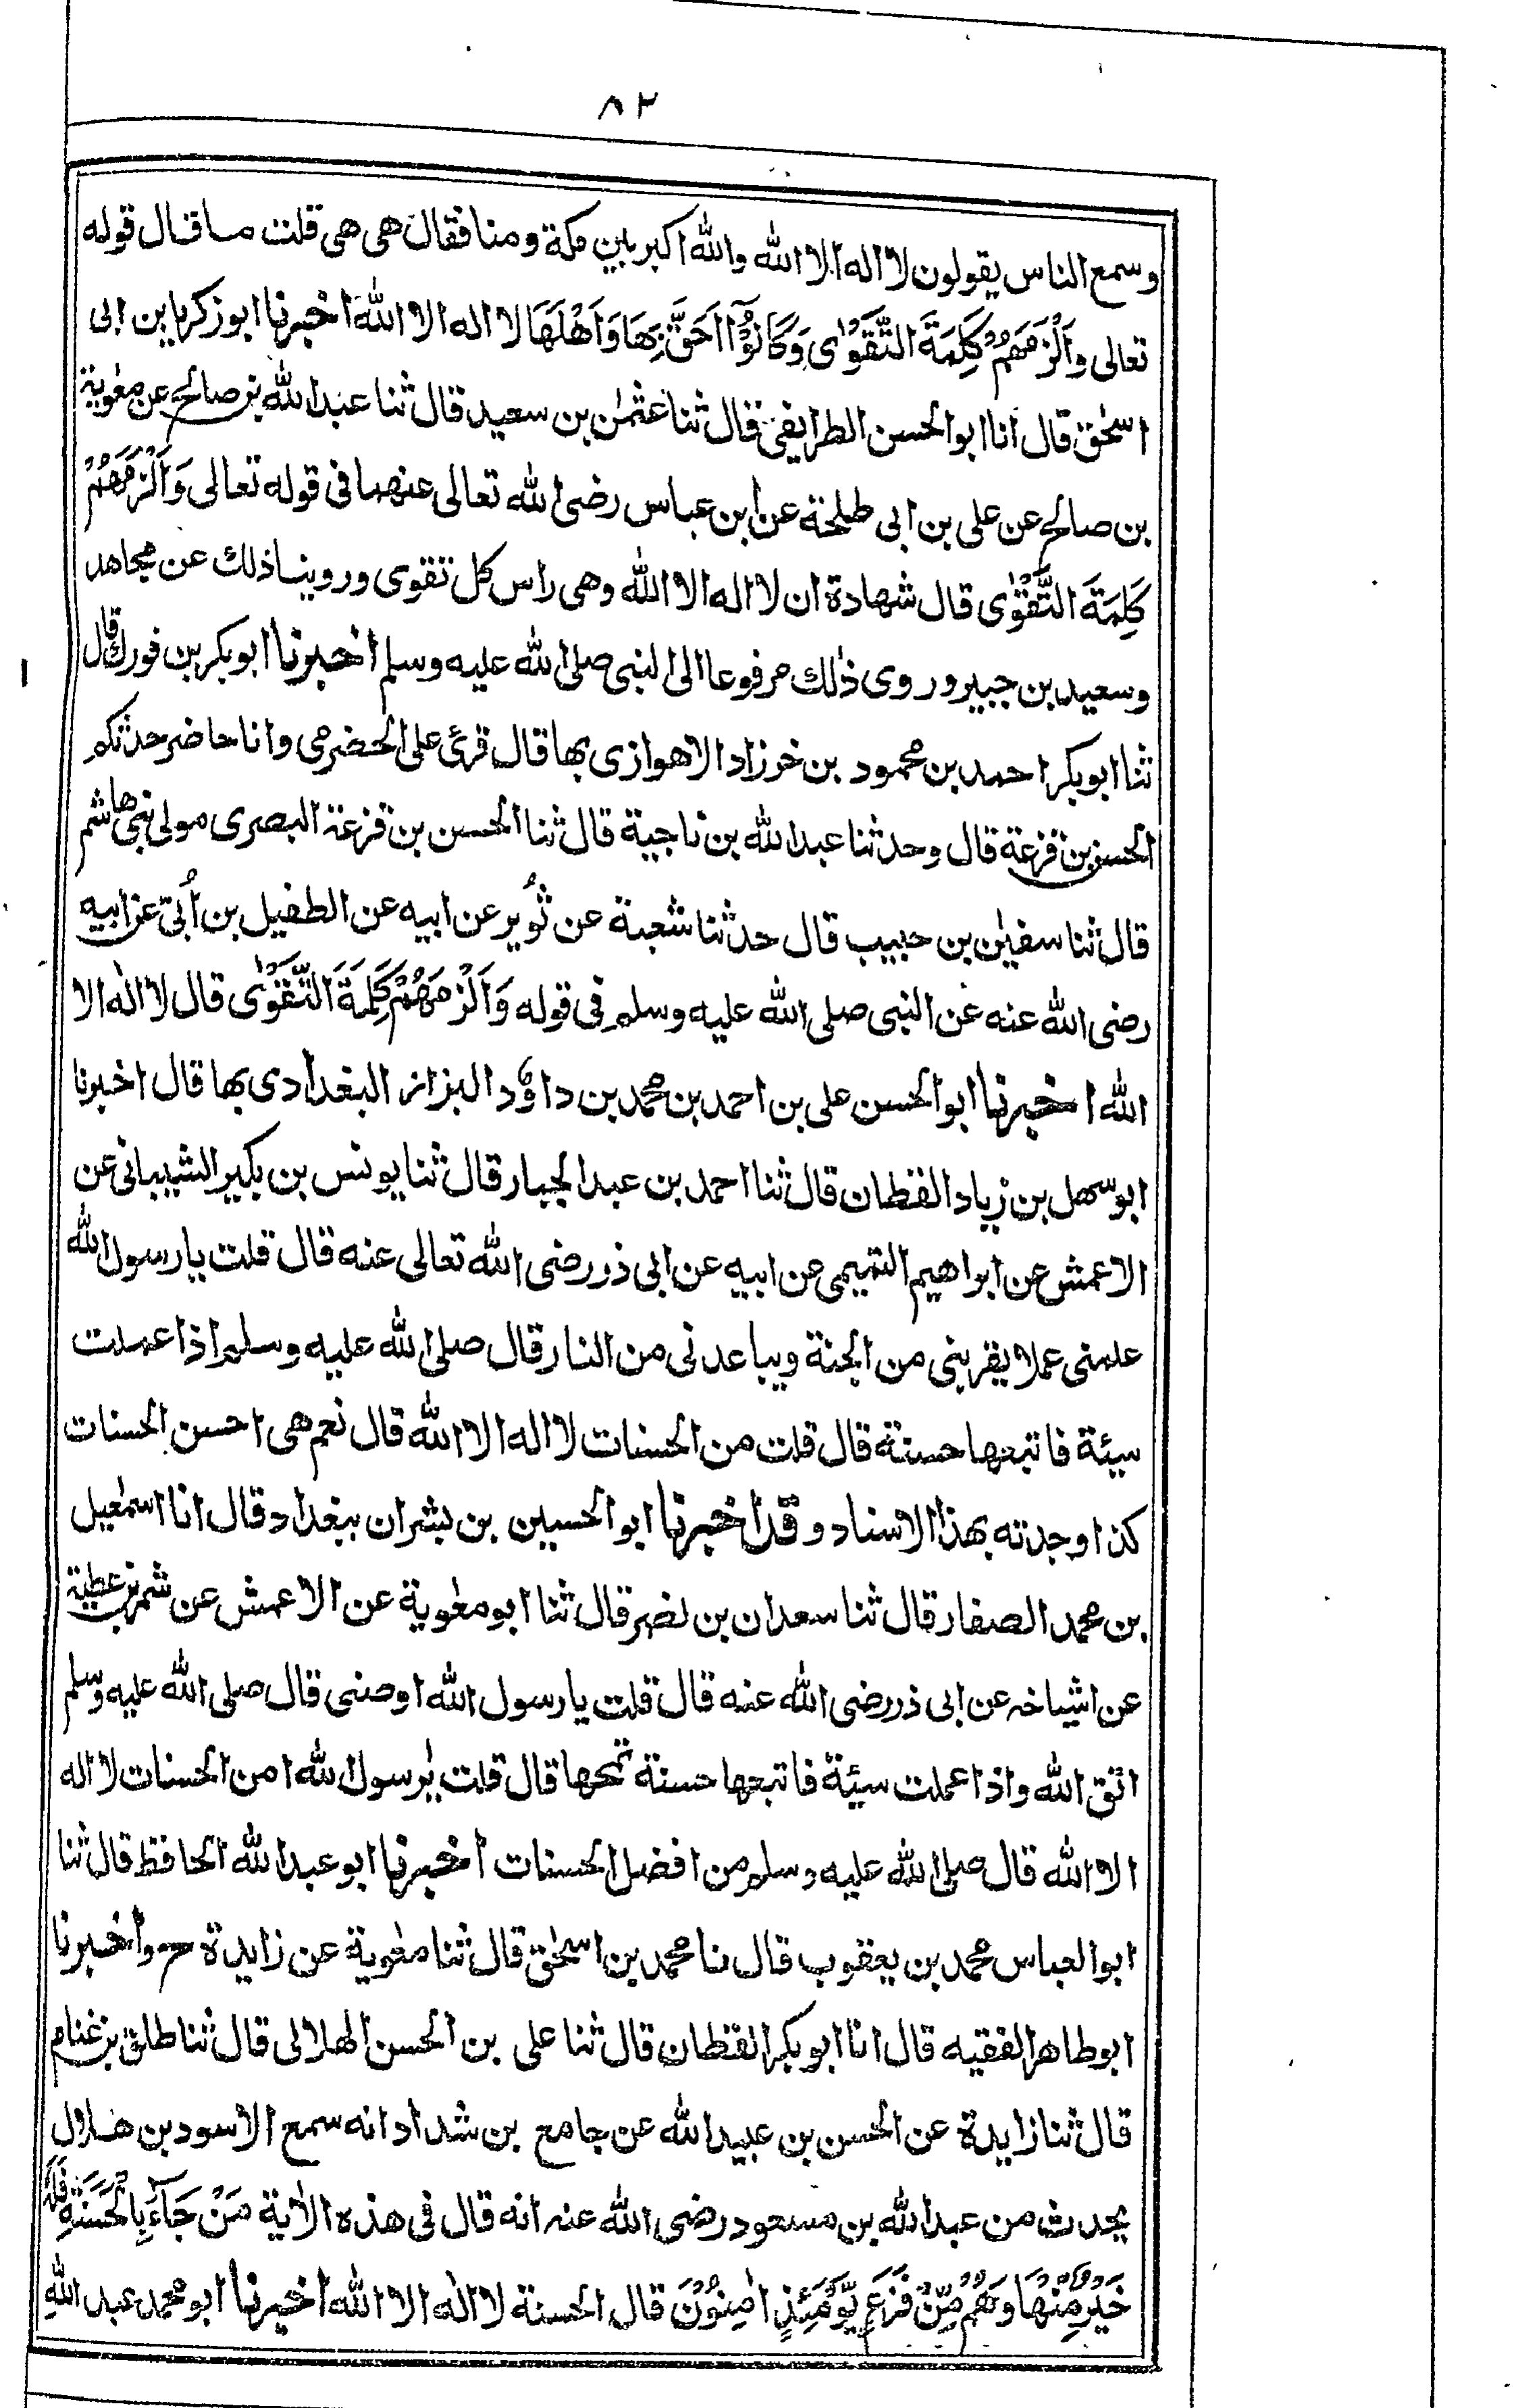 ٨٢
وسمع الناس يقولون لا اله الا الله والله اكبر بين مكة ومنا فقال هى هى قلت ما قال قوله
تعالى وَاَلْزَمَهُمْ كَلِمَةَ التَّقْوٰى وَكَانُوْٓا اَحَقَّ بِهَا وَاَهْلَهَا لا اله الا الله اخبرنا ابو زكريا بن ابى
اسحٰق قال انا ابو الحسن الطرايفى قال ثنا عثمٰن بن سعيد قال ثنا عبد الله بن صالح عن معٰوية
بن صالح عن على بن ابى طلحة عن ابن عباس رضى الله تعالى عنهما فى قوله تعالى وَاَلْزَمَهُمْ
كَلِمَةَ التَّقْوٰى قال شهادة ان لا اله الا الله وهى راس كل تقوى وروينا ذلك عن مجاهد
وسعيد بن جبير وروى ذٰلك مرفوعا الى النبى صلى الله عليه وسلم اخبرنا ابو بكر بن فورك قال
ثنا ابو بكر احمد بن محمود بن خرزاد الاهوازى بها قال قرئ على الحضرمى وانا حاضر حدثكم
الحسن بن قزعة قال وحدثنا عبد الله بن ناجية قال ثنا الحسن بن قزعة البصرى مولى بنى هاشم
قال ثنا سفيٰن بن حبيب قال حدثنا شعبة عن ثُوير عن ابيه عن الطفيل بن اُبىّ عن ابيه
رضى الله عنه عن النبى صلى الله عليه وسلم فى قوله وَاَلْزَمَهُمْ كَلِمَةَ التَّقْوٰى قال لا اله الا
الله اخبرنا ابو الحسن على بن احمد بن محمد بن داؤد البزاز البغدادى بها قال اخبرنا
ابو سهل بن زياد القطان قال ثنا احمد بن عبد الجبار قال ثنا يونس بن بكير الشيبانى عن
الاعمش عن ابراهيم التيمى عن ابيه عن ابى ذر رضى الله تعالى عنه قال قلت يا رسول الله
علمنى عملا يقربنى من الجنة ويباعدنى من النار قال صلى الله عليه وسلم اذا عملت
سيئة فاتبعها حسنة قال قلت من الحسنات لا اله الا الله قال نعم هى احسن الحسنات
كذا وجدته بهذا الاسناد وقد اخبرنا ابو الحسين بن بشران ببغداد قال انا اسمٰعيل
بن محمد الصفار قال ثنا سعدان بن نصر قال ثنا ابو معٰوية عن الاعمش عن شمر بن عطية
عن اشياخه عن ابى ذر رضى الله عنه قال قلت يا رسول الله اوصنى قال صلى الله عليه وسلم
اتق الله واذا عملت سيئة فاتبعها حسنة تمحها قال قلت يٰرسول الله امن الحسنات لا اله
الا الله قال صلى الله عليه وسلم من افضل الحسنات اخبرنا ابو عبد الله الحافظ قال ثنا
ابو العباس محمد بن يعقوب قال نا محمد بن اسحٰق قال ثنا معٰوية عن زايدة ح واخبرنا
ابو طاهر الفقيه قال انا ابو بكر القطان قال ثنا على بن الحسن الهلالى قال ثنا طلق بن غنام
قال ثنا زايدة عن الحسن بن عبيد الله عن جامع بن شداد انه سمع الاسود بن هلال
يحدث من عبد الله بن مسعود رضى الله عنه انه قال فى هذه الاٰية مَنْ جَآءَ بِالْحَسَنَةِ فَلَهٗ
خَيْرٌ مِّنْهَا وَهُمْ مِّنْ فَزَعٍ يَّوْمَئِذٍ اٰمِنُوْنَ قال الحسنة لا اله الا الله اخبرنا ابو محمد عبد الله